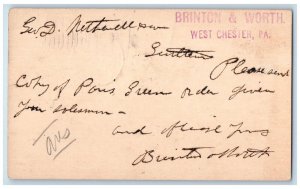 BRINTON & WORTH.
WEST CHESTER, PA.
Geo D. Netherell
Please send
Copy of Paris Green order given
your salesman -
and oblige yours
Brinton & Worth
Ans